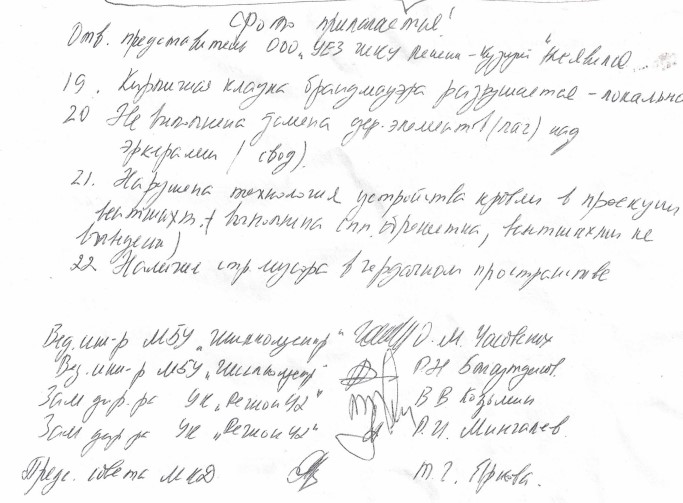 Фото прилагается!
Отв. представитель ООО "УЕЗ ЖКУ Ленин-Кузнецк" не явился
19. Кирпичная кладка брандмауэра разрушается - локально
20 Не выполнена замена дер. элементов (лаг) над
эркерами (свод).
21. Нарушена технология устройства кровли в проекции
вентшахт. выполнена
выведены)
22 Наличие стр. мусора в чердачном пространстве
Вед. инж-р МБУ "Жилкомцентр" О. М. Часовских
Вед. инж-р МБУ "Жилкомцентр" Р.Н
Зам дир-ра УК "Регион 42" В В Козьмин
Зам дир-ра УК "Регион 42" Р. И. Мингалев.
Предс. совета МКД Т. Г.